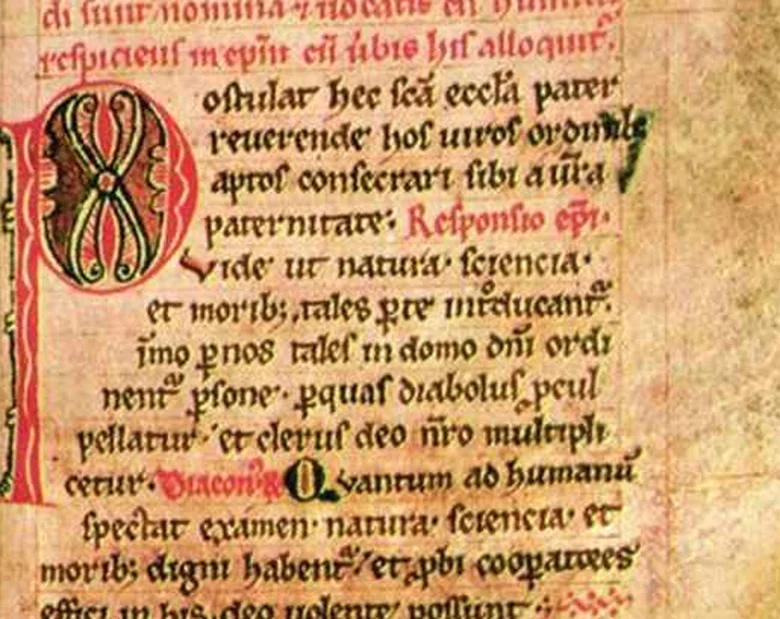 di sunt nomina ⁊ uocatis eū
respiciens in ep̄m cū ūbis his alloquit᷑.
Postulat hec sc̄a eccl̄a pater
reuerende hos uiros ordinib;
aptos consecrari sibi a ūr̄a
paternitate. Responsio ep̄i.
Vide ut natura. sciencia.
et morib; tales ꝑ te introducant᷑.
īmo ꝑ nos tales in domo dn̄i ordi
nent᷑ ꝑsone. ꝑ quas diabolus pcul
pellatur. et clerus deo nr̄o multipli
cetur. Diacon᷒ R Quantum ad humanū
spectat examen. natura. sciencia. et
morib; digni habent᷑. et ꝓbi cooꝑatores
effici in his. deo uolente possunt.